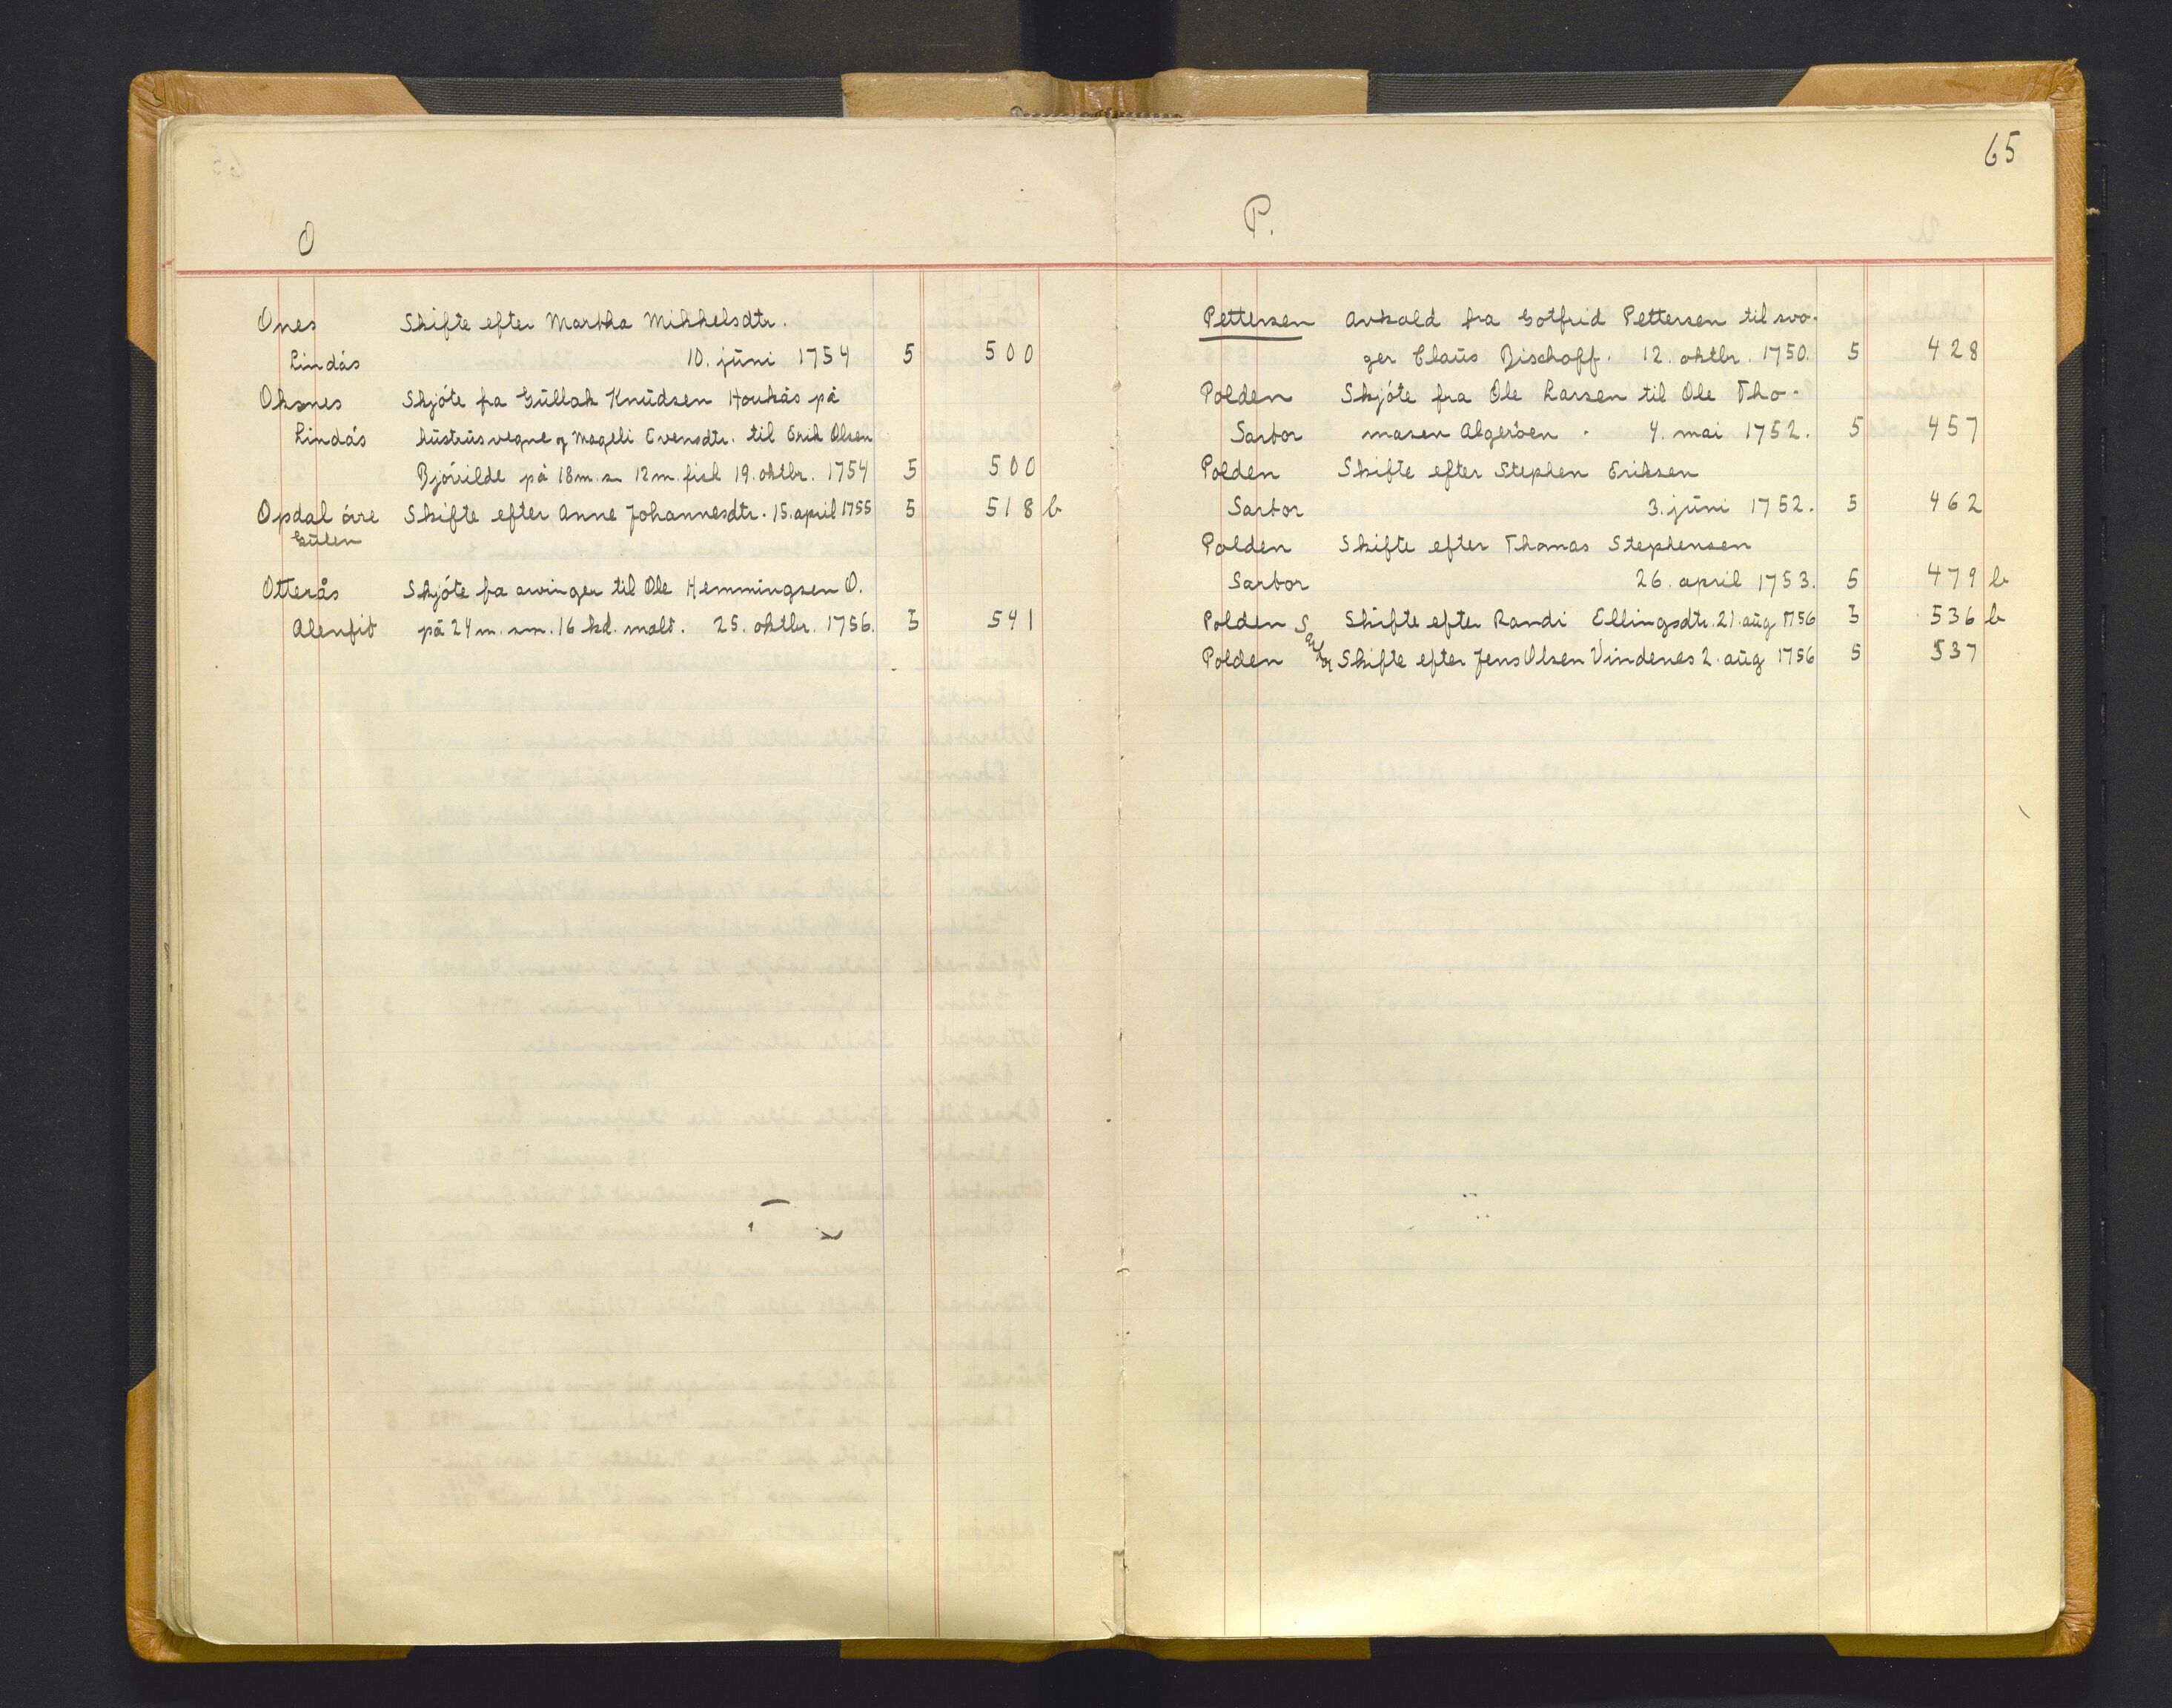 O
Ones Skifte efter Martha Mikkelsdtr.
Lindås 10. júni 1754 5 500
Oksnes Skjóte fra Gúllak Knúdsen Houkås på
Lindås hústrús vegne og Mageli Evensdtr. til Erik Olsen
på 18m. s. 12m. fisk 19. oktbr. 1754 5 500
Opdal óvre Skifte efter Anne Johannesdtr. 15. april 1755 5 518 b
Gúlen
Otterås Skjóte fra arvinger til Ole Hemmingsen O.
Alenfit på 24 m. sm. 16 kd. malt. 25. oktbr. 1756. 5 541
65
P.
Pettersen Avkald fra Gotfrid Pettersen til svo-
ger Claús Bischoff. 12. oktbr. 1750. 5 428
Polden Skjóte fra Ole Larsen til Ole Tho-
Sartor masen Algeröen. 4. mai 1752. 5 457
Polden Skifte efter Stephen Eriksen
Sartor 3. júni 1752. 5 462
Polden Skifte efter Thomas Stephensen
Sartor 26. april 1753. 5 479 b
Polden Sartor Skifte efter Randi Ellingsdtr. 21. aúg 1756 5 536 b
Polden Skifte efter Jens Olsen Vindenes 2. aúg 1756 5 537